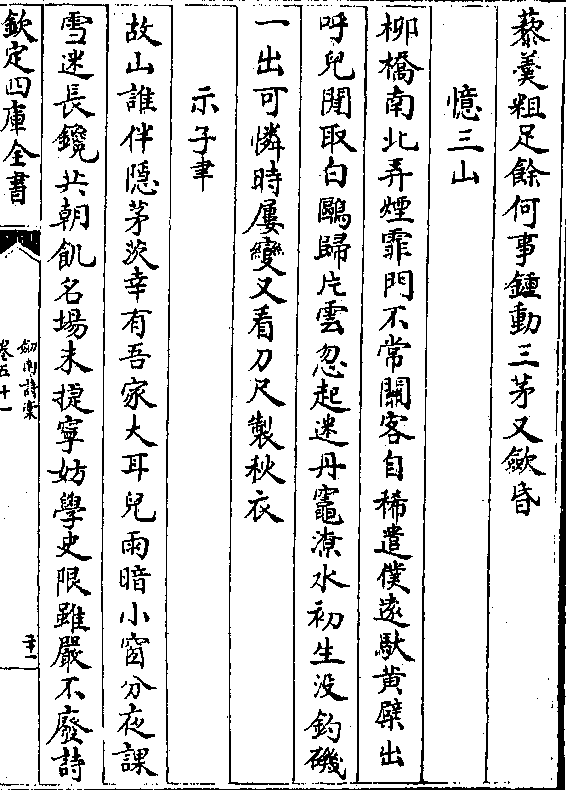 藜羹粗足餘何事鍾動三茅又歛昏
憶三山
柳橋南北弄煙霏門不常關客自稀遣僕遠馱黄檗出
呼兒閒取白鷗歸片雲忽起迷丹竈潦水初生没釣磯
一出可憐時屢變又看刀尺製秋衣
示子聿
故山誰伴隱茅茨幸有吾家大耳兒雨暗小窗分夜課
雪迷長鑱共朝飢名場未捷寧妨學史限雖嚴不廢詩
欽定四庫全書
劒南詩稾
卷五十一